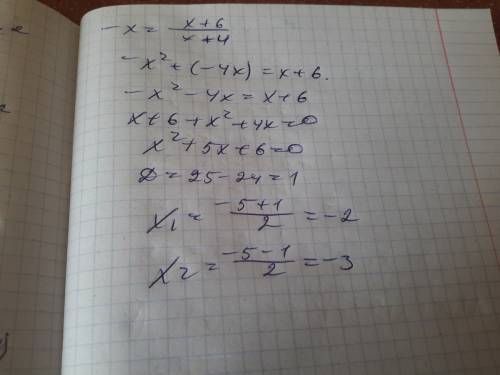 -x = x+6 / x+4
-x² + (-4x) = x+6.
-x² - 4x = x+6
x+6+x²+4x=0
x²+5x+6=0
D = 25-24=1
x1 = -5+1 / 2 = -2
x2 = -5-1 / 2 = -3